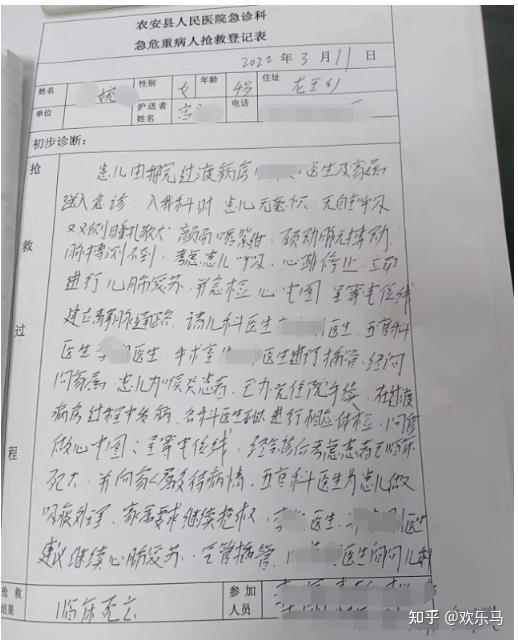 农安县人民医院急诊科
急危重病人抢救登记表
2022 年 3 月 11 日
姓名 性别 女 年龄 4岁 住址 龙王
单位 护送者姓名 宫 电话
初步诊断:
抢救过程
患儿由我院过渡病房 医生及家属
送入急诊,入我科时,患儿无意识,无自主呼吸
双侧瞳孔散大,颜面口唇紫绀,颈动脉无搏动,
脉搏测不到,考虑患儿呼吸、心跳停止,立即
进行心肺复苏,并急检心电图 呈等电位线
建立静脉通路,请儿科医生 医生,五官科
医生 医生,手术室 医生进行插管,经询
问家属,患儿为喉炎患者,已办完住院手续,在过渡
病房过程中发病,各科医生到 进行相应体检,同时
做心电图:呈等电位线,经 考虑患者已临床
死亡,并向家属交待病情,五官科医生为患儿做
吸痰处理,家属要求继续抢救, 医生、 医生
建议继续心肺复苏、气管插管, 医生询问儿科
抢救结果 临床死亡 参加人员
知乎 @欢乐马